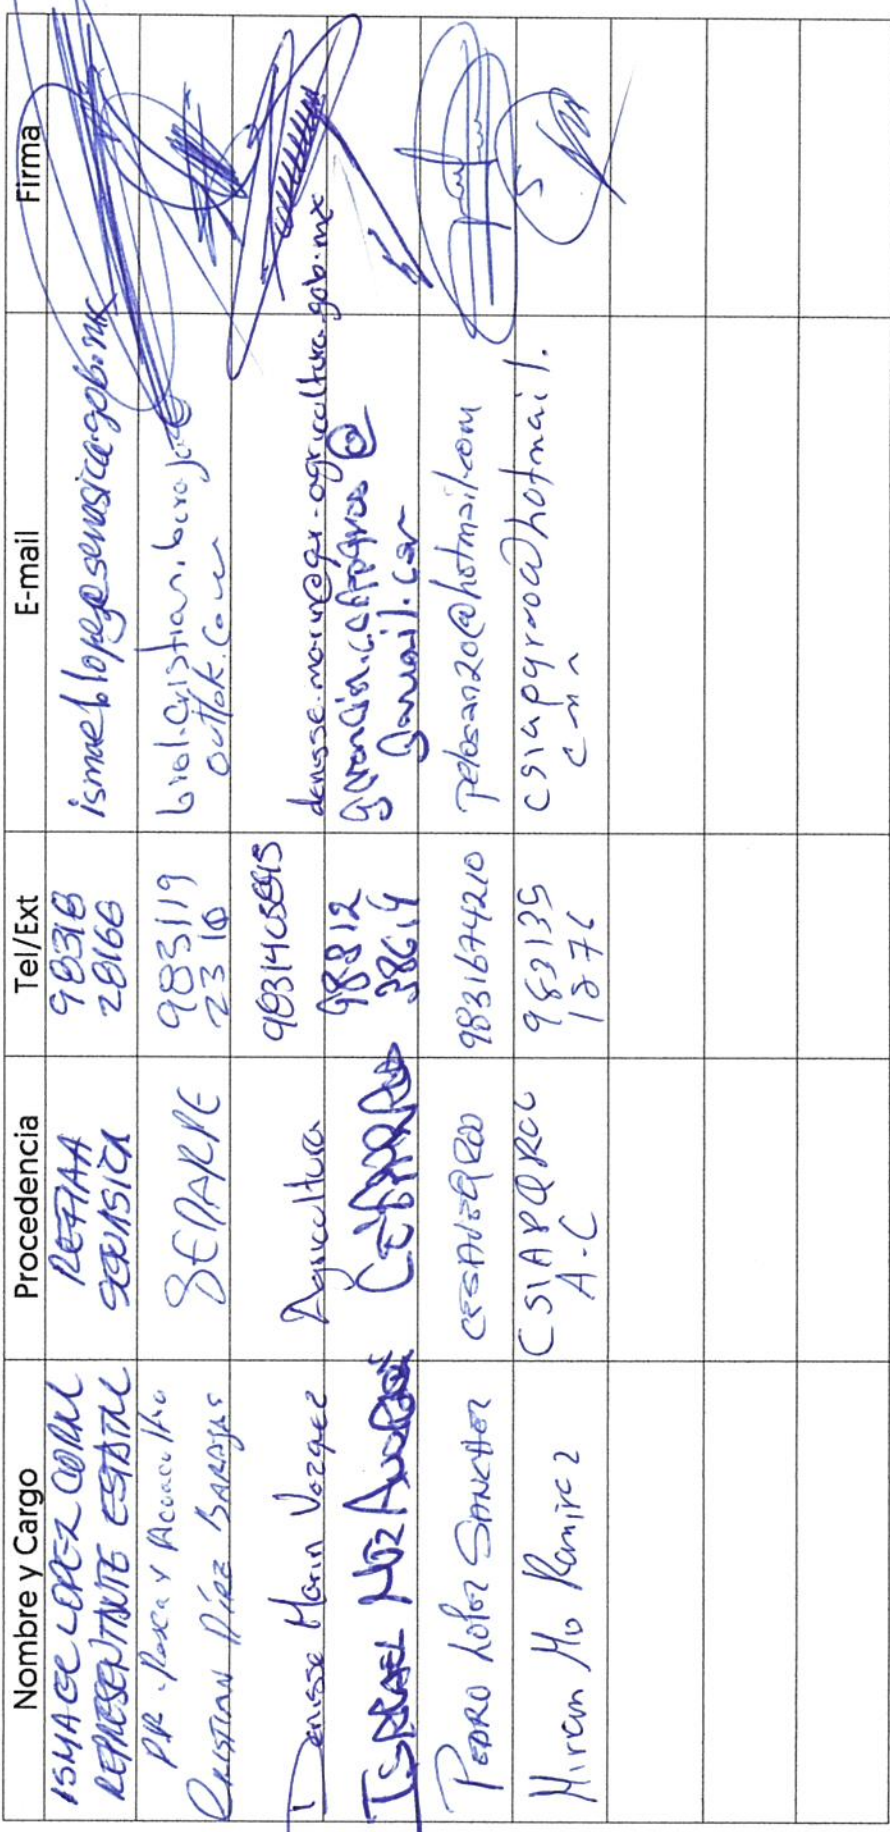 Nombre y Cargo Procedencia Tel/Ext E-mail Firma
ISMAEL LOPEZ CORAL
REPRESENTANTE ESTATAL
REFIAA
SENASICA
98316
28166
ismael.lopez@senasica.gob.mx
P.R. Pesca y Acuacultura
CRISTIAN Díaz BARAJAS
SEDARPE
983119
2310
biol.cristian.barajas@
outlok.com
Denisse Marin Vazquez
Agricultura
denisse.marin@qr.agricultura.gob.mx
ISRAEL
98812
38614
gmail.com
PEDRO LOPEZ SANCHEZ
CESAVEQROO
9831674210
pelosan20@hotmail.com
Miriam Mo Ramirez
CSIAPQROO
A.C
983135
1876
csiapqroo@hotmail.
com